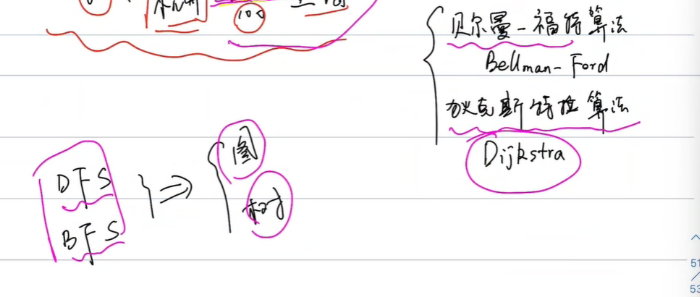 100
贝尔曼-福特算法
Bellman-Ford
狄克斯特拉算法
Dijkstra
DFS
BFS
图
树
51
53